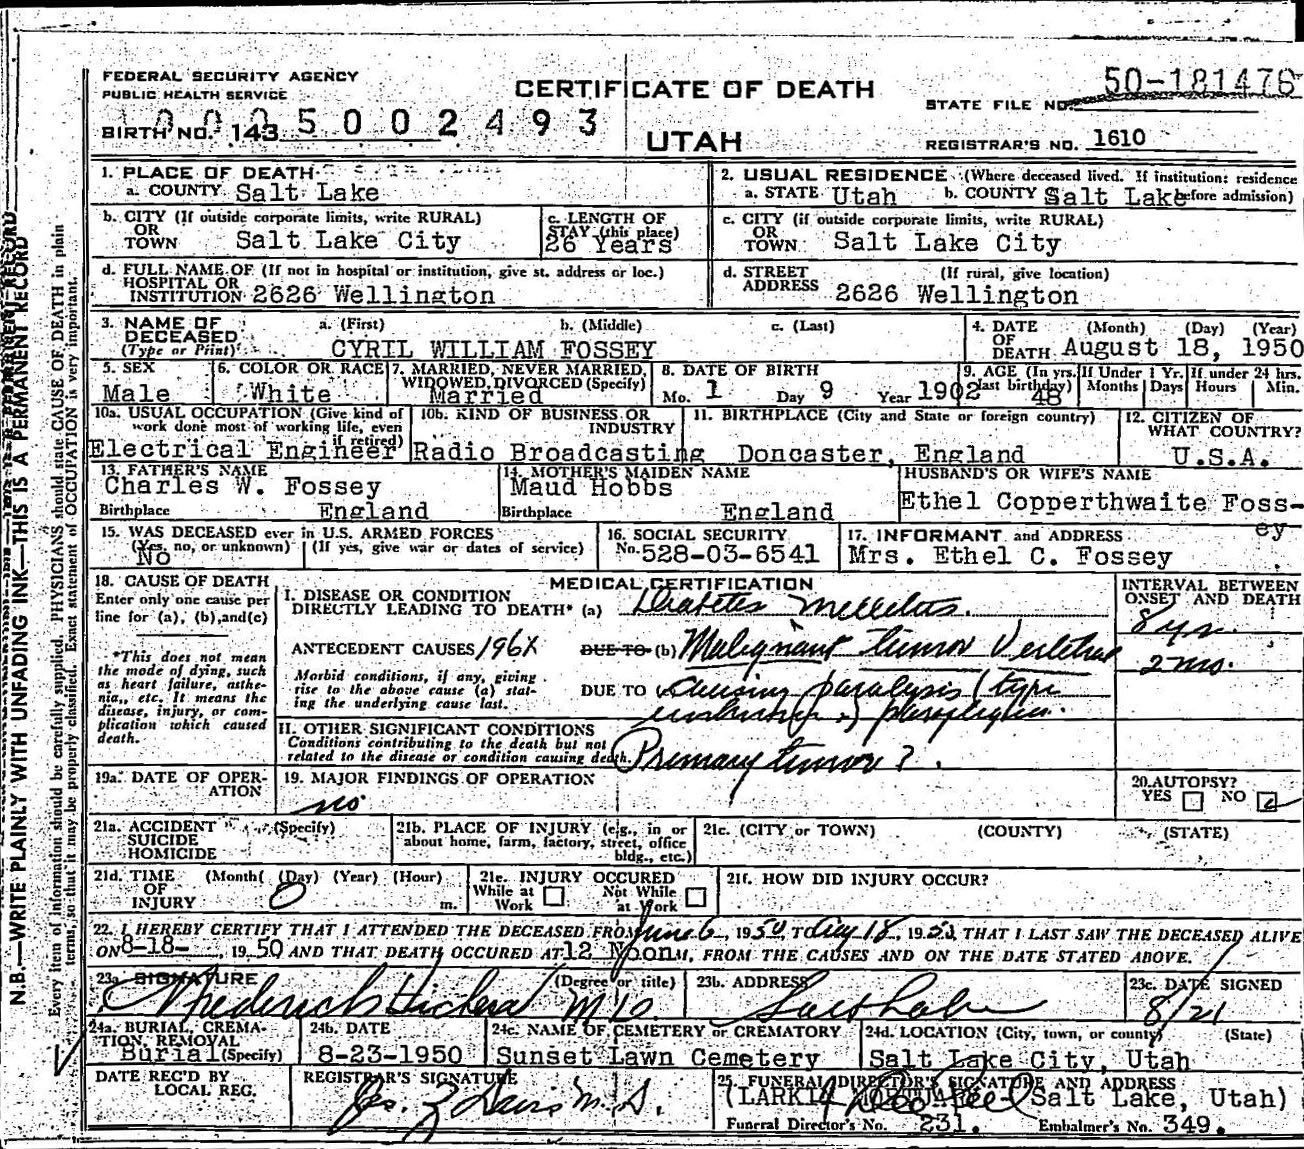 FEDERAL SECURITY AGENCY
PUBLIC HEALTH SERVICE
CERTIFICATE OF DEATH
UTAH
STATE FILE NO. 50-181476
BIRTH NO. 143
5002493
REGISTRAR'S NO. 1610
1. PLACE OF DEATH
a. COUNTY Salt Lake
2. USUAL RESIDENCE (Where deceased lived. If institution: residence before admission)
a. STATE Utah b. COUNTY Salt Lake
b. CITY (If outside corporate limits, write RURAL)
OR
TOWN Salt Lake City
c. LENGTH OF
STAY (this place)
26 Years
c. CITY (if outside corporate limits, write RURAL)
OR
TOWN Salt Lake City
d. FULL NAME OF (If not in hospital or institution, give st. address or loc.)
HOSPITAL OR
INSTITUTION 2626 Wellington
d. STREET (If rural, give location)
ADDRESS 2626 Wellington
3. NAME OF a. (First) b. (Middle) c. (Last)
DECEASED
(Type or Print) CYRIL WILLIAM FOSSEY
4. DATE (Month) (Day) (Year)
OF
DEATH August 18, 1950
5. SEX
Male
6. COLOR OR RACE
White
7. MARRIED, NEVER MARRIED,
WIDOWED, DIVORCED (Specify)
Married
8. DATE OF BIRTH
Mo. 1 Day 9 Year 1902
9. AGE (In yrs. last birthday) 48
If Under 1 Yr. Months Days
If under 24 hrs. Hours Min.
10a. USUAL OCCUPATION (Give kind of
work done most of working life, even
if retired)
Electrical Engineer
10b. KIND OF BUSINESS OR
INDUSTRY
Radio Broadcasting
11. BIRTHPLACE (City and State or foreign country)
Doncaster, England
12. CITIZEN OF
WHAT COUNTRY?
U.S.A.
13. FATHER'S NAME
Charles W. Fossey
Birthplace England
14. MOTHER'S MAIDEN NAME
Maud Hobbs
Birthplace England
HUSBAND'S OR WIFE'S NAME
Ethel Copperthwaite Foss-
ey
15. WAS DECEASED ever in U.S. ARMED FORCES
(Yes, no, or unknown) (If yes, give war or dates of service)
No
16. SOCIAL SECURITY
No. 528-03-6541
17. INFORMANT and ADDRESS
Mrs. Ethel C. Fossey
18. CAUSE OF DEATH
Enter only one cause per
line for (a), (b), and (c)
*This does not mean
the mode of dying, such
as heart failure, asthe-
nia, etc. It means the
disease, injury, or com-
plication which caused
death.
MEDICAL CERTIFICATION
I. DISEASE OR CONDITION
DIRECTLY LEADING TO DEATH* (a) Diabetes Mellitus.
ANTECEDENT CAUSES 196X
DUE TO (b) Malignant tumor
Morbid conditions, if any, giving
rise to the above cause (a) stat-
ing the underlying cause last.
DUE TO causing paralysis (type
INTERVAL BETWEEN
ONSET AND DEATH
8 yrs.
2 mo.
II. OTHER SIGNIFICANT CONDITIONS
Conditions contributing to the death but not
related to the disease or condition causing death.
Primary tumor ?
19a. DATE OF OPER-
ATION
19. MAJOR FINDINGS OF OPERATION
no
20. AUTOPSY?
YES NO
21a. ACCIDENT (Specify)
SUICIDE
HOMICIDE
21b. PLACE OF INJURY (e.g., in or
about home, farm, factory, street, office
bldg., etc.)
21c. (CITY or TOWN) (COUNTY) (STATE)
21d. TIME (Month) (Day) (Year) (Hour)
OF
INJURY 0 m.
21e. INJURY OCCURED
While at Work Not While at Work
21f. HOW DID INJURY OCCUR?
22. I HEREBY CERTIFY THAT I ATTENDED THE DECEASED FROM June 6, 1950 TO Aug 18, 1950, THAT I LAST SAW THE DECEASED ALIVE
ON 8-18-, 1950 AND THAT DEATH OCCURED AT 12 Noon M., FROM THE CAUSES AND ON THE DATE STATED ABOVE.
23a. SIGNATURE (Degree or title)
MD
23b. ADDRESS
Salt Lake
23c. DATE SIGNED
8/21
24a. BURIAL, CREMA-
TION, REMOVAL
Burial (Specify)
24b. DATE
8-23-1950
24c. NAME OF CEMETERY OR CREMATORY
Sunset Lawn Cemetery
24d. LOCATION (City, town, or county) (State)
Salt Lake City, Utah
DATE REC'D BY
LOCAL REG.
REGISTRAR'S SIGNATURE
25. FUNERAL DIRECTOR'S SIGNATURE AND ADDRESS
Salt Lake, Utah)
Funeral Director's No. 231. Embalmer's No. 349.
N.B.—WRITE PLAINLY WITH UNFADING INK—THIS IS A PERMANENT RECORD
Every item of information should be carefully supplied. PHYSICIANS should state CAUSE OF DEATH in plain
terms, so that it may be properly classified. Exact statement of OCCUPATION is very important.